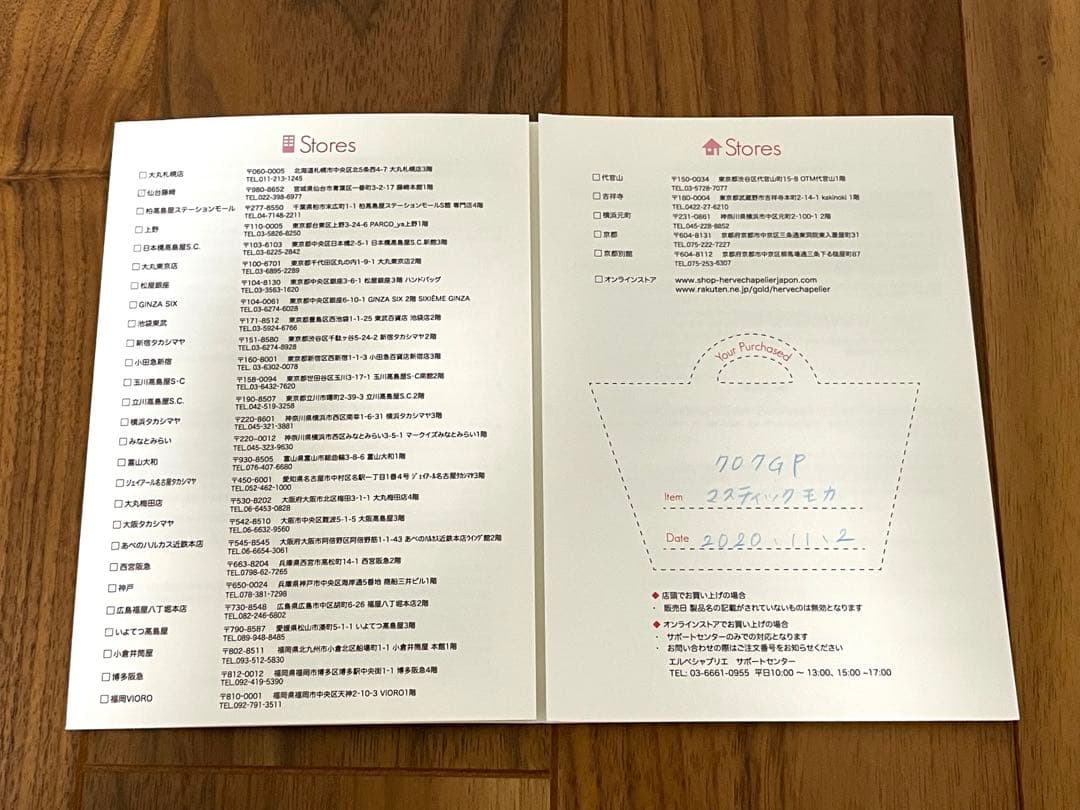 Stores
□大丸札幌店 〒060-0005 北海道札幌市中央区北5条西4-7 大丸札幌店3階
TEL.011-213-1245
□仙台藤崎 〒980-8652 宮城県仙台市青葉区一番町3-2-17 藤崎本館1階
TEL.022-398-6977
□柏高島屋ステーションモール 〒277-8550 千葉県柏市末広町1-1 柏高島屋ステーションモールS館 専門店4階
TEL.04-7148-2211
□上野 〒110-0005 東京都台東区上野3-24-6 PARCO_ya上野1階
TEL.03-5826-8250
□日本橋高島屋S.C. 〒103-6103 東京都中央区日本橋2-5-1 日本橋高島屋S.C.新館3階
TEL.03-6225-2842
□大丸東京店 〒100-6701 東京都千代田区丸の内1-9-1 大丸東京店2階
TEL.03-6895-2289
□松屋銀座 〒104-8130 東京都中央区銀座3-6-1 松屋銀座3階 ハンドバッグ
TEL.03-3563-1620
□GINZA SIX 〒104-0061 東京都中央区銀座6-10-1 GINZA SIX 2階 SIXIÈME GINZA
TEL.03-6274-6028
□池袋東武 〒171-8512 東京都豊島区西池袋1-1-25 東武百貨店 池袋店2階
TEL.03-5924-6766
□新宿タカシマヤ 〒151-8580 東京都渋谷区千駄ヶ谷5-24-2 新宿タカシマヤ2階
TEL.03-6274-8928
□小田急新宿 〒160-8001 東京都新宿区西新宿1-1-3 小田急百貨店新宿店3階
TEL.03-6302-0078
□玉川高島屋S・C 〒158-0094 東京都世田谷区玉川3-17-1 玉川高島屋S・C南館2階
TEL.03-6432-7620
□立川高島屋S.C. 〒190-8507 東京都立川市曙町2-39-3 立川高島屋S.C.2階
TEL.042-519-3258
□横浜タカシマヤ 〒220-8601 神奈川県横浜市西区南幸1-6-31 横浜タカシマヤ3階
TEL.045-321-3881
□みなとみらい 〒220-0012 神奈川県横浜市西区みなとみらい3-5-1 マークイズみなとみらい1階
TEL.045-323-9630
□富山大和 〒930-8505 富山県富山市総曲輪3-8-6 富山大和1階
TEL.076-407-6680
□ジェイアール名古屋タカシマヤ 〒450-6001 愛知県名古屋市中村区名駅一丁目1番4号 ジェイアール名古屋タカシマヤ3階
TEL.052-462-1000
□大丸梅田店 〒530-8202 大阪府大阪市北区梅田3-1-1 大丸梅田店4階
TEL.06-6453-0828
□大阪タカシマヤ 〒542-8510 大阪市中央区難波5-1-5 大阪高島屋3階
TEL.06-6632-9560
□あべのハルカス近鉄本店 〒545-8545 大阪府大阪市阿倍野区阿倍野筋1-1-43 あべのハルカス近鉄本店ウイング館2階
TEL.06-6654-3061
□西宮阪急 〒663-8204 兵庫県西宮市高松町14-1 西宮阪急2階
TEL.0798-62-7265
□神戸 〒650-0024 兵庫県神戸市中央区海岸通5番地 商船三井ビル1階
TEL.078-381-7298
□広島福屋八丁堀本店 〒730-8548 広島県広島市中区胡町6-26 福屋八丁堀本店2階
TEL.082-246-6802
□いよてつ高島屋 〒790-8587 愛媛県松山市湊町5-1-1 いよてつ高島屋3階
TEL.089-948-8485
□小倉井筒屋 〒802-8511 福岡県北九州市小倉北区船場町1-1 小倉井筒屋 本館1階
TEL.093-512-5830
□博多阪急 〒812-0012 福岡県福岡市博多区博多駅中央街1-1 博多阪急4階
TEL.092-419-5390
□福岡VIORO 〒810-0001 福岡県福岡市中央区天神2-10-3 VIORO1階
TEL.092-791-3511
Stores
□代官山 〒150-0034 東京都渋谷区代官山町15-8 OTM代官山1階
TEL.03-5728-7077
□吉祥寺 〒180-0004 東京都武蔵野市吉祥寺本町2-14-1 kakinoki 1階
TEL.0422-27-6210
□横浜元町 〒231-0861 神奈川県横浜市中区元町2-100-1 2階
TEL.045-228-8852
□京都 〒604-8131 京都府京都市中京区三条通東洞院東入菱屋町31
TEL.075-222-7227
□京都別館 〒604-8112 京都府京都市中京区柳馬場通三条下る槌屋町87
TEL.075-253-6307
□オンラインストア www.shop-hervechapelierjapon.com
www.rakuten.ne.jp/gold/hervechapelier
Your Purchased
707GP
Item マスティックモカ
Date 2020.11.2
◆店頭でお買い上げの場合
・ 販売日 製品名の記載がされていないものは無効となります
◆オンラインストアでお買い上げの場合
・ サポートセンターのみでの対応となります
・ お問い合わせの際はご注文番号をお知らせください
エルベシャプリエ サポートセンター
TEL: 03-6661-0955 平日10:00 ～ 13:00、15:00 ~17:00